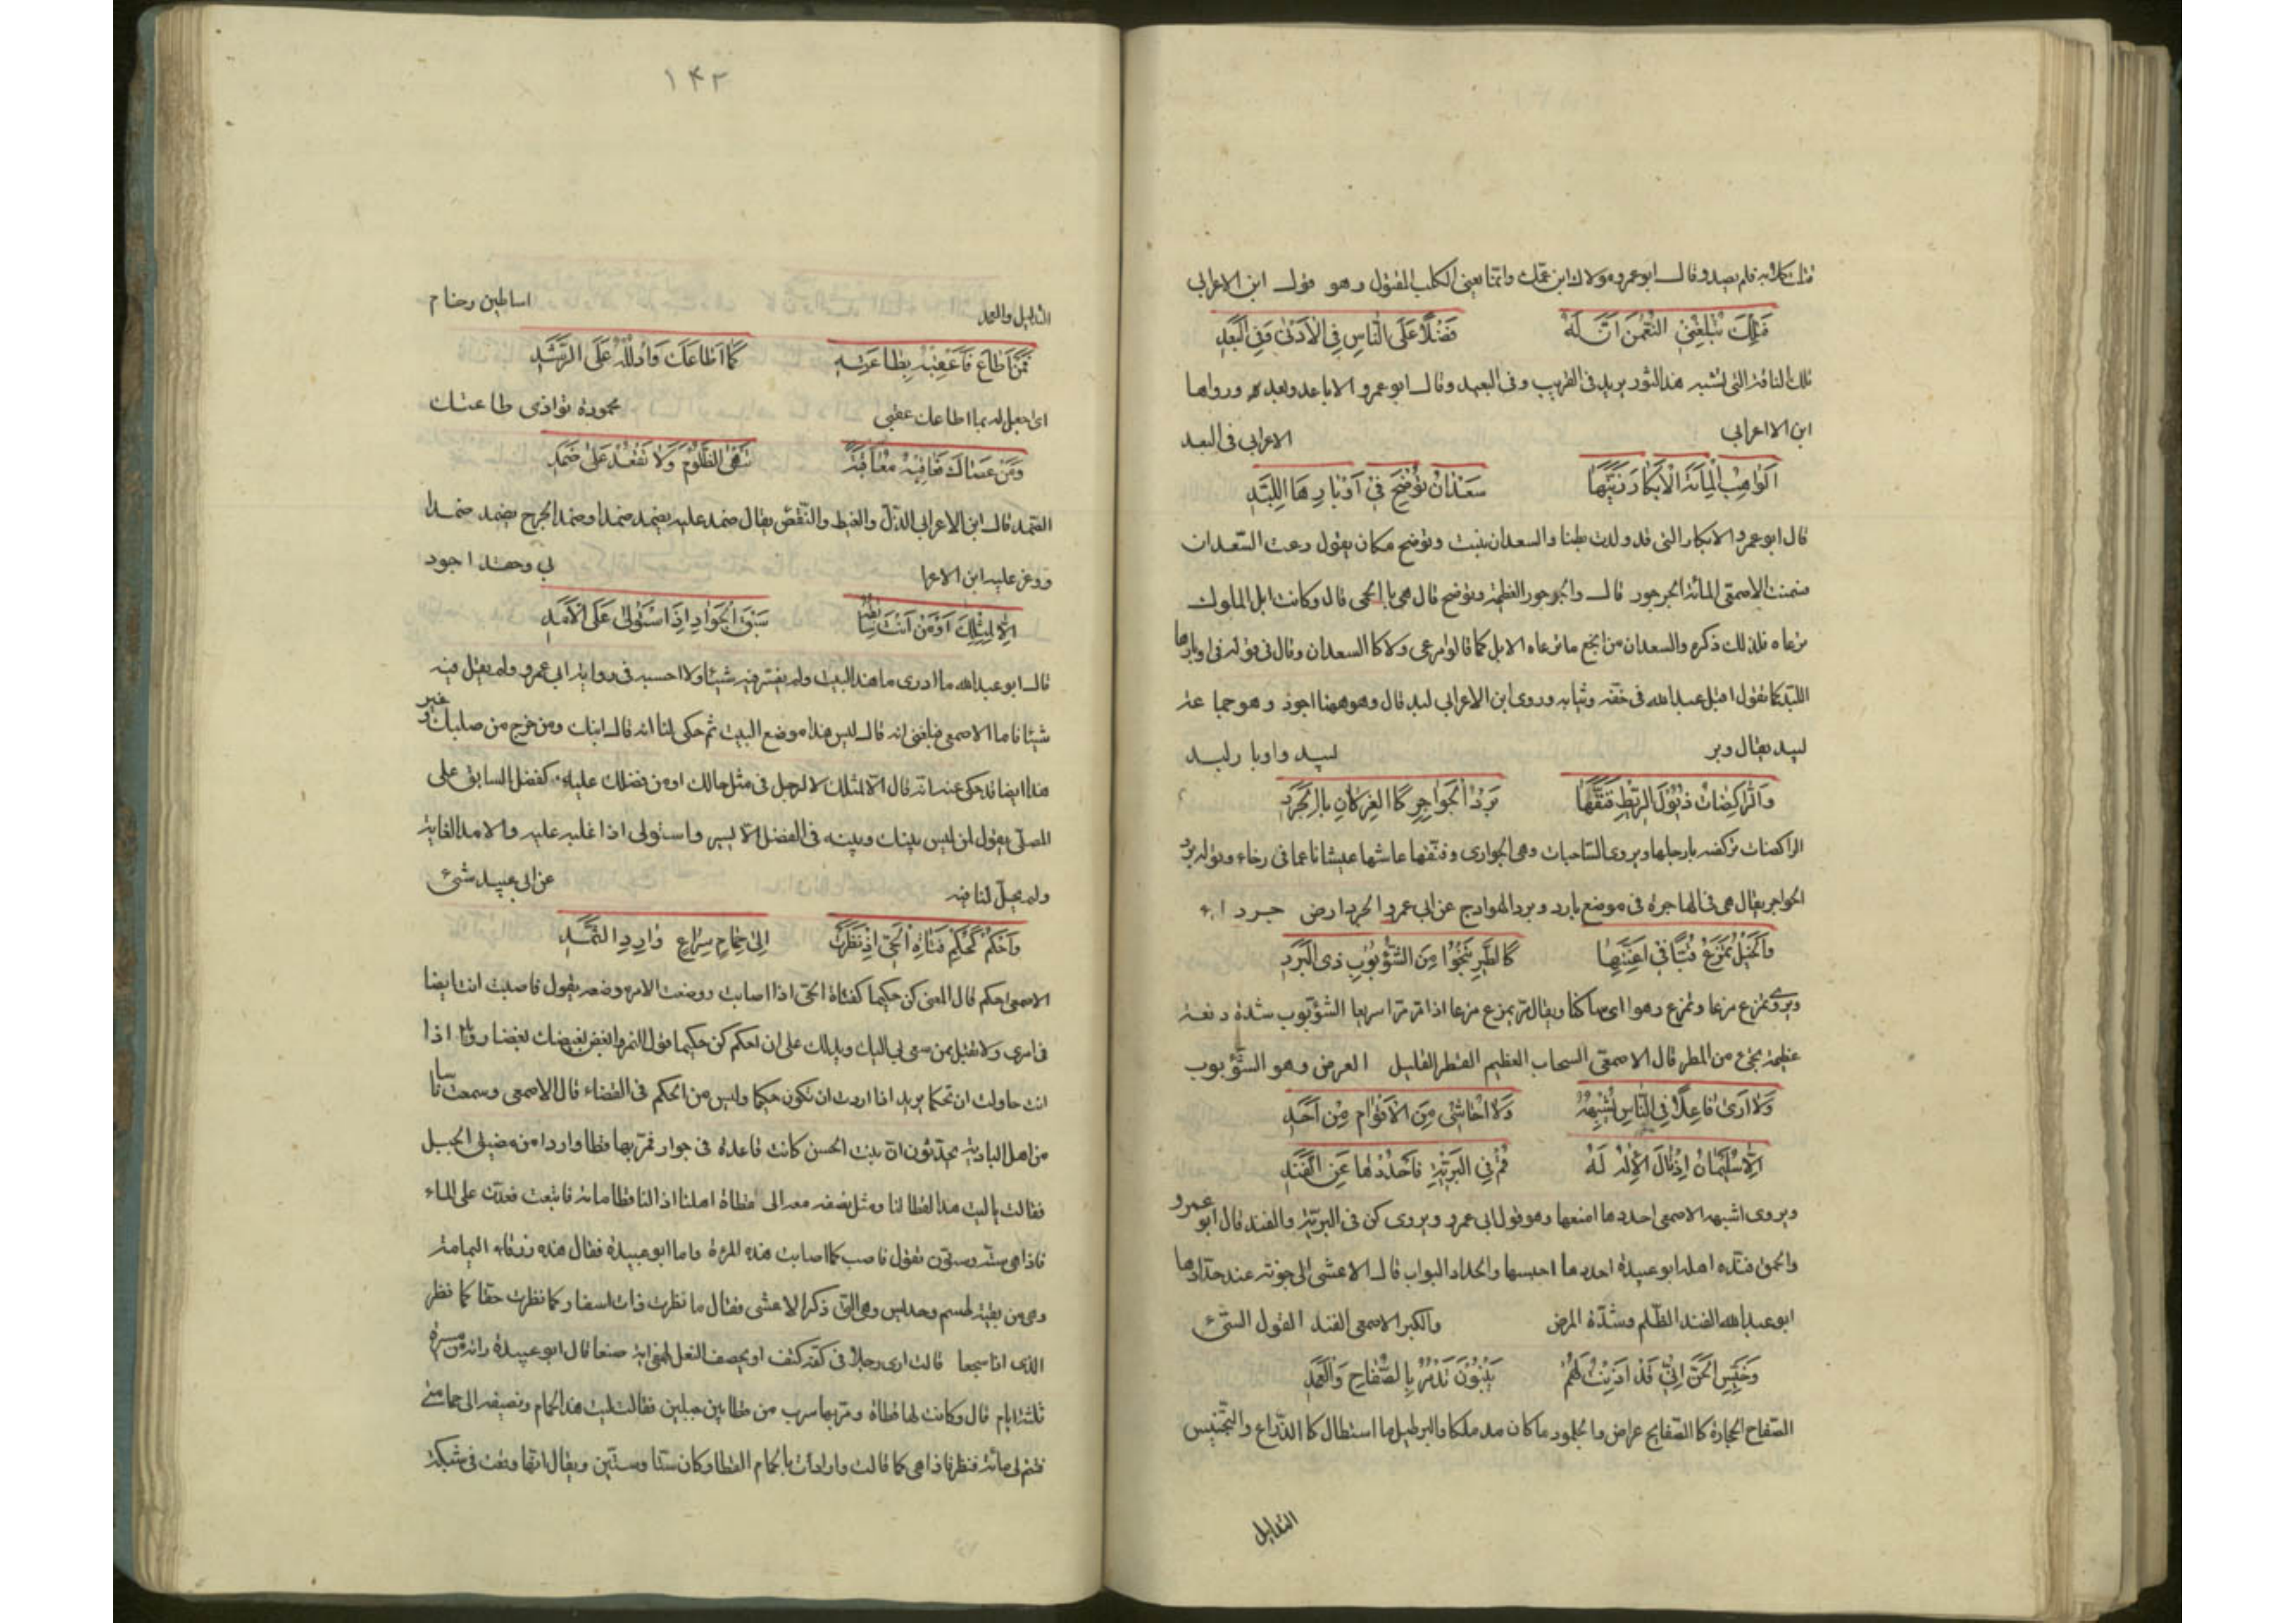 فلم يصد وقال ابو عمرو مولاك ابن عمك وانما يعنى الكلب المقتول وهو قول ابن الاعرابى
فَتِلْكَ تُبْلِغُنِى النُّعْمٰنَ اَنَّ لَهُ فَضْلًا عَلَى النّاسِ فِى الْاَدْنٰى وَفِى الْبَعَدِ
تلك الناقة التى تشبه هذا الثور يريد فى القريب وفى البعيد وقال ابو عمرو الاباعد وبعد ورواها
ابن الااعرابى الاعرابى فى البعد
اَلْوٰاهِبُ الْمِائَةَ الْاَبْكٰارَ زَيَّنَهٰا سَعْدٰانُ تُوْضِحَ فِى اَوْبٰارِهَا اللِّبَدِ
قال ابو عمرو الابكار التى قد ولدت بطنا والسعدان نبت وتوضح مكان يقول رعت السعدان
فسمنت الاصمعى المائة الجرجور قال والجرجور العظيمة وتوضح قال هى بالحمى قال وكانت ابل الملوك
ترعاه فلذلك ذكره والسعدان من انجع ما ترعاه الابل كما قالوا مرعى ولا كا السعدان وقال فى قوله فى اوبارها
اللبد كما تقول اقبل عبدالله فى خفه وثيابه وروى ابن الاعرابى لبد قال وهو ههنا اجود وهو جماعة
لبيد يقال وبر لبيد واوبار لبد
وَالرّٰاكِضٰاتِ ذُيُوْلَ الرَّيْطِ فَنَّقَهٰا بَرْدُ الْهَوٰاجِرِ كَاالْغِزْلٰانِ بِالْجَرَدِ
الراكضات تركضه بارجلها ويروى الساحبات وهى الجوارى وفنقها عاشها عيشا ناعما فى رخاء وقوله برد
الهواجر يقال هى فى الهاجرة فى موضع بارد وبرد الهوادج عن ابى عمرو الجرد ارض جرداء
وَالْخَيْلَ تَمْزَعُ قُبًّا فِى اَعِنَّتِهٰا كَاالطَّيْرِ تَنْجُوْا مِنَ الشُّؤْبُوْبِ ذِى الْبَرَدِ
ويروى تمزع مزعا وتمزع وهو اى ساكنا ويقال مر يمزع مزعا اذا مر مرا سريعا الشؤبوب شدة دفعة
عظيمة تجئ من المطر قال الاصمعى السحاب العظيم القطر القليل العرض وهو الشؤبوب
وَلٰا اَرٰى فٰاعِلًا فِى النّٰاسِ يُشْبِهُهُ وَلٰا اُحٰاشِى مِنَ الْاَقْوٰامِ مِنْ اَحَدِ
اِلّٰا سُلَيْمٰانَ اِذْ قٰالَ الْاِلٰهُ لَهُ قُمْ فِى الْبَرِيَّةِ فَاحْدُدْهٰا عَنِ الْفَنَدِ
ويروى اشبهه الاصمعى احددها امنعها وهو قول ابى عمرو ويروى كن فى البرية والفند قال ابو عمرو
والحمق فنده اهله ابو عبيدة احددها احبسها والحداد البواب قال الاعشى الى جونة عند حدادها
ابو عبدالله الفند الظلم وشدة المرض والكبر الاصمعى الفند القول السئ
وَخَيِّسِ الْجِنَّ اِنِّى قَدْ اَذِنْتُ لَهُمْ يَبْنُوْنَ تَدْمُرَ بِالصُّفّٰاحِ وَالْعَمَدِ
الصفاح الحجارة كا الصفايح عراض والجلود ما كان مدملكا والبرطيل ما استطال كا الذراع والتخييس
التذليل
١٤٢
التذليل والعمد اساطين رخام
فَمَنْ اَطٰاعَ فَاَعْقِبْهُ بِطٰاعَتِهِ كَمٰا اَطٰاعَكَ وَادْلُلْهُ عَلَى الرَّشَدِ
اى اجعل له بما اطاعك عقبى محمودة توازى طاعتك
وَمَنْ عَصٰاكَ فَعٰاقِبْهُ مُعٰاقَبَةً تَنْهَى الظَّلُوْمَ وَلٰا تَقْعُدْ عَلٰى ضَمَدِ
الضمد قال ابن الاعرابى الذل والغيظ والنقص يقال ضمد عليه يضمد ضمدا وضمد الجرح يضمد ضمدا
ووغر عليه ابن الاعرا بى وحقد اجود
اِلّٰا لِمِثْلِكَ اَوْ مَنْ اَنْتَ سٰابِقُهُ سَبْقَ الْجَوٰادِ اِذَا اسْتَوْلٰى عَلَى الْاَمَدِ
قال ابو عبدالله ما ادرى ما هذا البيت ولم يفسر فيه شيئا ولا احسبه فى رواية ابى عمرو ولم يقل فيه
شيئا فاما الاصمعى فبلغنى انه قال ليس هذا موضع البيت ثم حكى لنا انه قال ابنك ومن خرج من صلبك وغير
هذا ايضا قد حكى عنه انه قال الا لمثلك لا لرجل فى مثل حالك او من فضلك عليه كفضل السابق على
المصلى يقول ان ليس بينك وبينه فى الفضل الا يسير واستولى اذا غلب عليه والامد الغاية
ولم يجل لنا فيه عن ابى عبيد شئ
وَاحْكُمْ كَحُكْمِ فَتٰاةِ الْحَىِّ اِذْ نَظَرَتْ اِلٰى حَمٰامٍ سِرٰاعٍ وٰارِدِ الثَّمَدِ
الاصمعى احكم قال المعنى كن حكيما كفتاة الحى اذا اصابت ووضعت الامر موضعه يقول فاصب انت ايضا
فى امرى ولا تقبل ممن سعى بى اليك ويدلك على ان احكم كن حكيما قول النمر وابغض بغيضك بغضا رويدا اذا
انت حاولت ان تحكما يريد اذا اردت ان تكون حكيما وليس من الحكم فى القضاء قال الاصمعى وسمعت ناسا
من اهل البادية يحدثون ان بنت الخس كانت قاعدة فى جوار فمر بها قطا واردا من مضيق الجبل
فقالت ياليت هذا القطا لنا ومثل نصفه معه الى قطاة اهلنا اذا لنا قطا مائة فاتبعت فعدت على الماء
فاذا هى ست وستون تقول فاصب كما اصابت هذه المرءة واما ابو عبيدة فقال هذه زرقاء اليمامة
وهى من بقية طسم وجديس وهى التى ذكر الاعشى فقال ما نظرت ذات اسفار كما نظرت حقا كما نظر
الذى اذا سجعا قالت ارى رجلا فى كفه كتف او يخصف النعل لهفى اية صنعا قال ابو عبيدة رانه من مسيرة
ثلثة ايام قال وكانت لها قطاة ومر بها سرب من قطا بين جبلين فقالت ليت هذا الحمام ونصيفه الى حمامتى
فيتم لى مائة فنظر فاذا هى كما قالت وارادت بالحمام القطا وكان ستا وستين ويقال انها وقعت فى شبكة